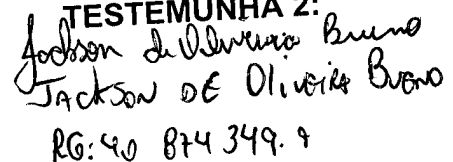 TESTEMUNHA 2:
Jackson de Oliveira Bueno
JACKSON DE OLIVEIRA BUENO
RG: 40 874 349. 9